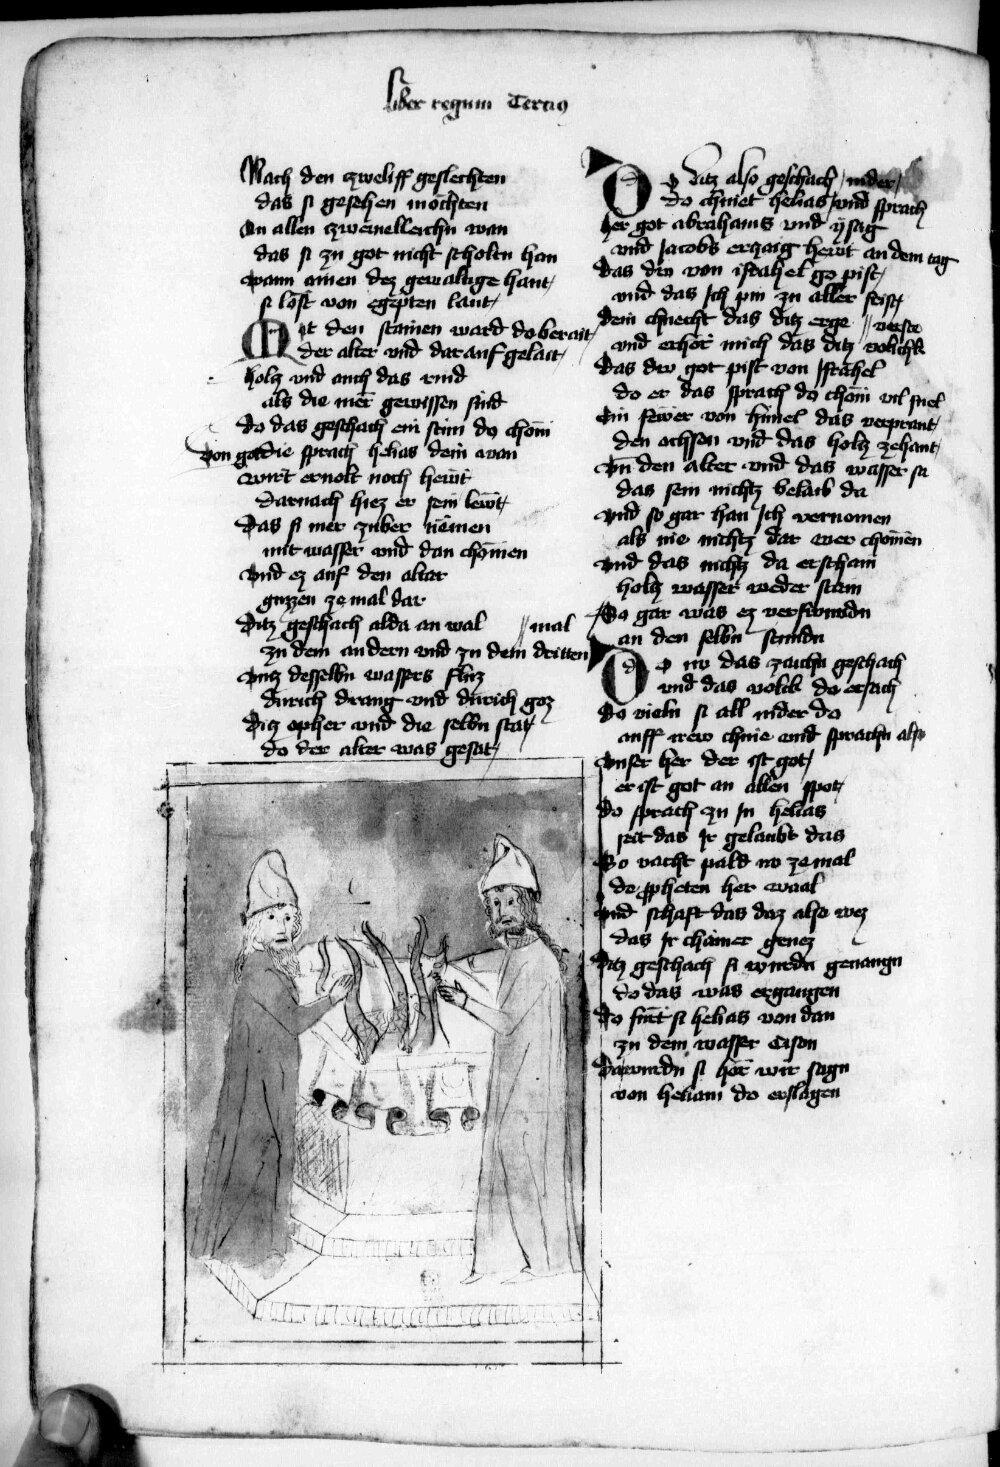 Liber regum Tercius
Nach den zweliff geslechten
das si gesehen mochten
An allen zweinellichn wan
das si zu got nicht scholtn han
wann ainen dez gewaltige hant
si lost von egepten lant
Mit den stainen ward do berait
der alter vnd darauf gelait
holtz vnd auch das rind
als die mer gewissen sind
do das geschach ein stim do chom
von got die sprach helias dein
wirt ernolt noch hewt
darnach hiez er sein lewt
Das si mer zuber nemen
mit wasser vnd dan chomen
vnd ez auf den altar
guzzen ze mal dar
Ditz geschach alda an wal // mal
zu dem andern vnd zu dem dritten
vntz desselbn wassers fluz
durich drang vnd durich goz
Ditz opher vnd die selbn stat
do der alter was gesat
Do Ditz also geschach / nider /
do chniet helias / vnd sprach
her got abrahams vnd ysag
vnd Jacobs erzaig hewt an dem tag
Das dw von israhel go pist
vnd das Ich pin zu aller frist
dein chnecht das ditz erge // verste
vnd erhor mich das ditz volichk
Das dw got pist von Israhel
do er das sprach do chom vil snel
Ein fewer von himel das verprant
den ochssen vnd das holtz zehant
vn den alter vnd das wasser sa
das sein nichtz belaib da
vnd so gar han Ich vernomen
als nie nichtz dar wer chomen
vnd das nichtz da erschain
holtz wasser weder stain
So gar was ez verswundn
an den selbn stundn
Do nw das zaichn geschach
vnd das volck do ersach
Do vieln si all nider do
auff irew chnie vnd sprachn also
vnser her der ist got
er ist got an allen spot
do sprach zu In helias
seit das Ir gelaubt das
So vacht pald nv ze mal
do propheten her waal
vnd schaft das daz also wez
das Ir chainer genez
Ditz geschach si wurdn genangn
do das was ergangen
Do furt si helias von dan
zu dem wasser Cison
Da wurdn si hor wir sagn
von heliam do erslagen